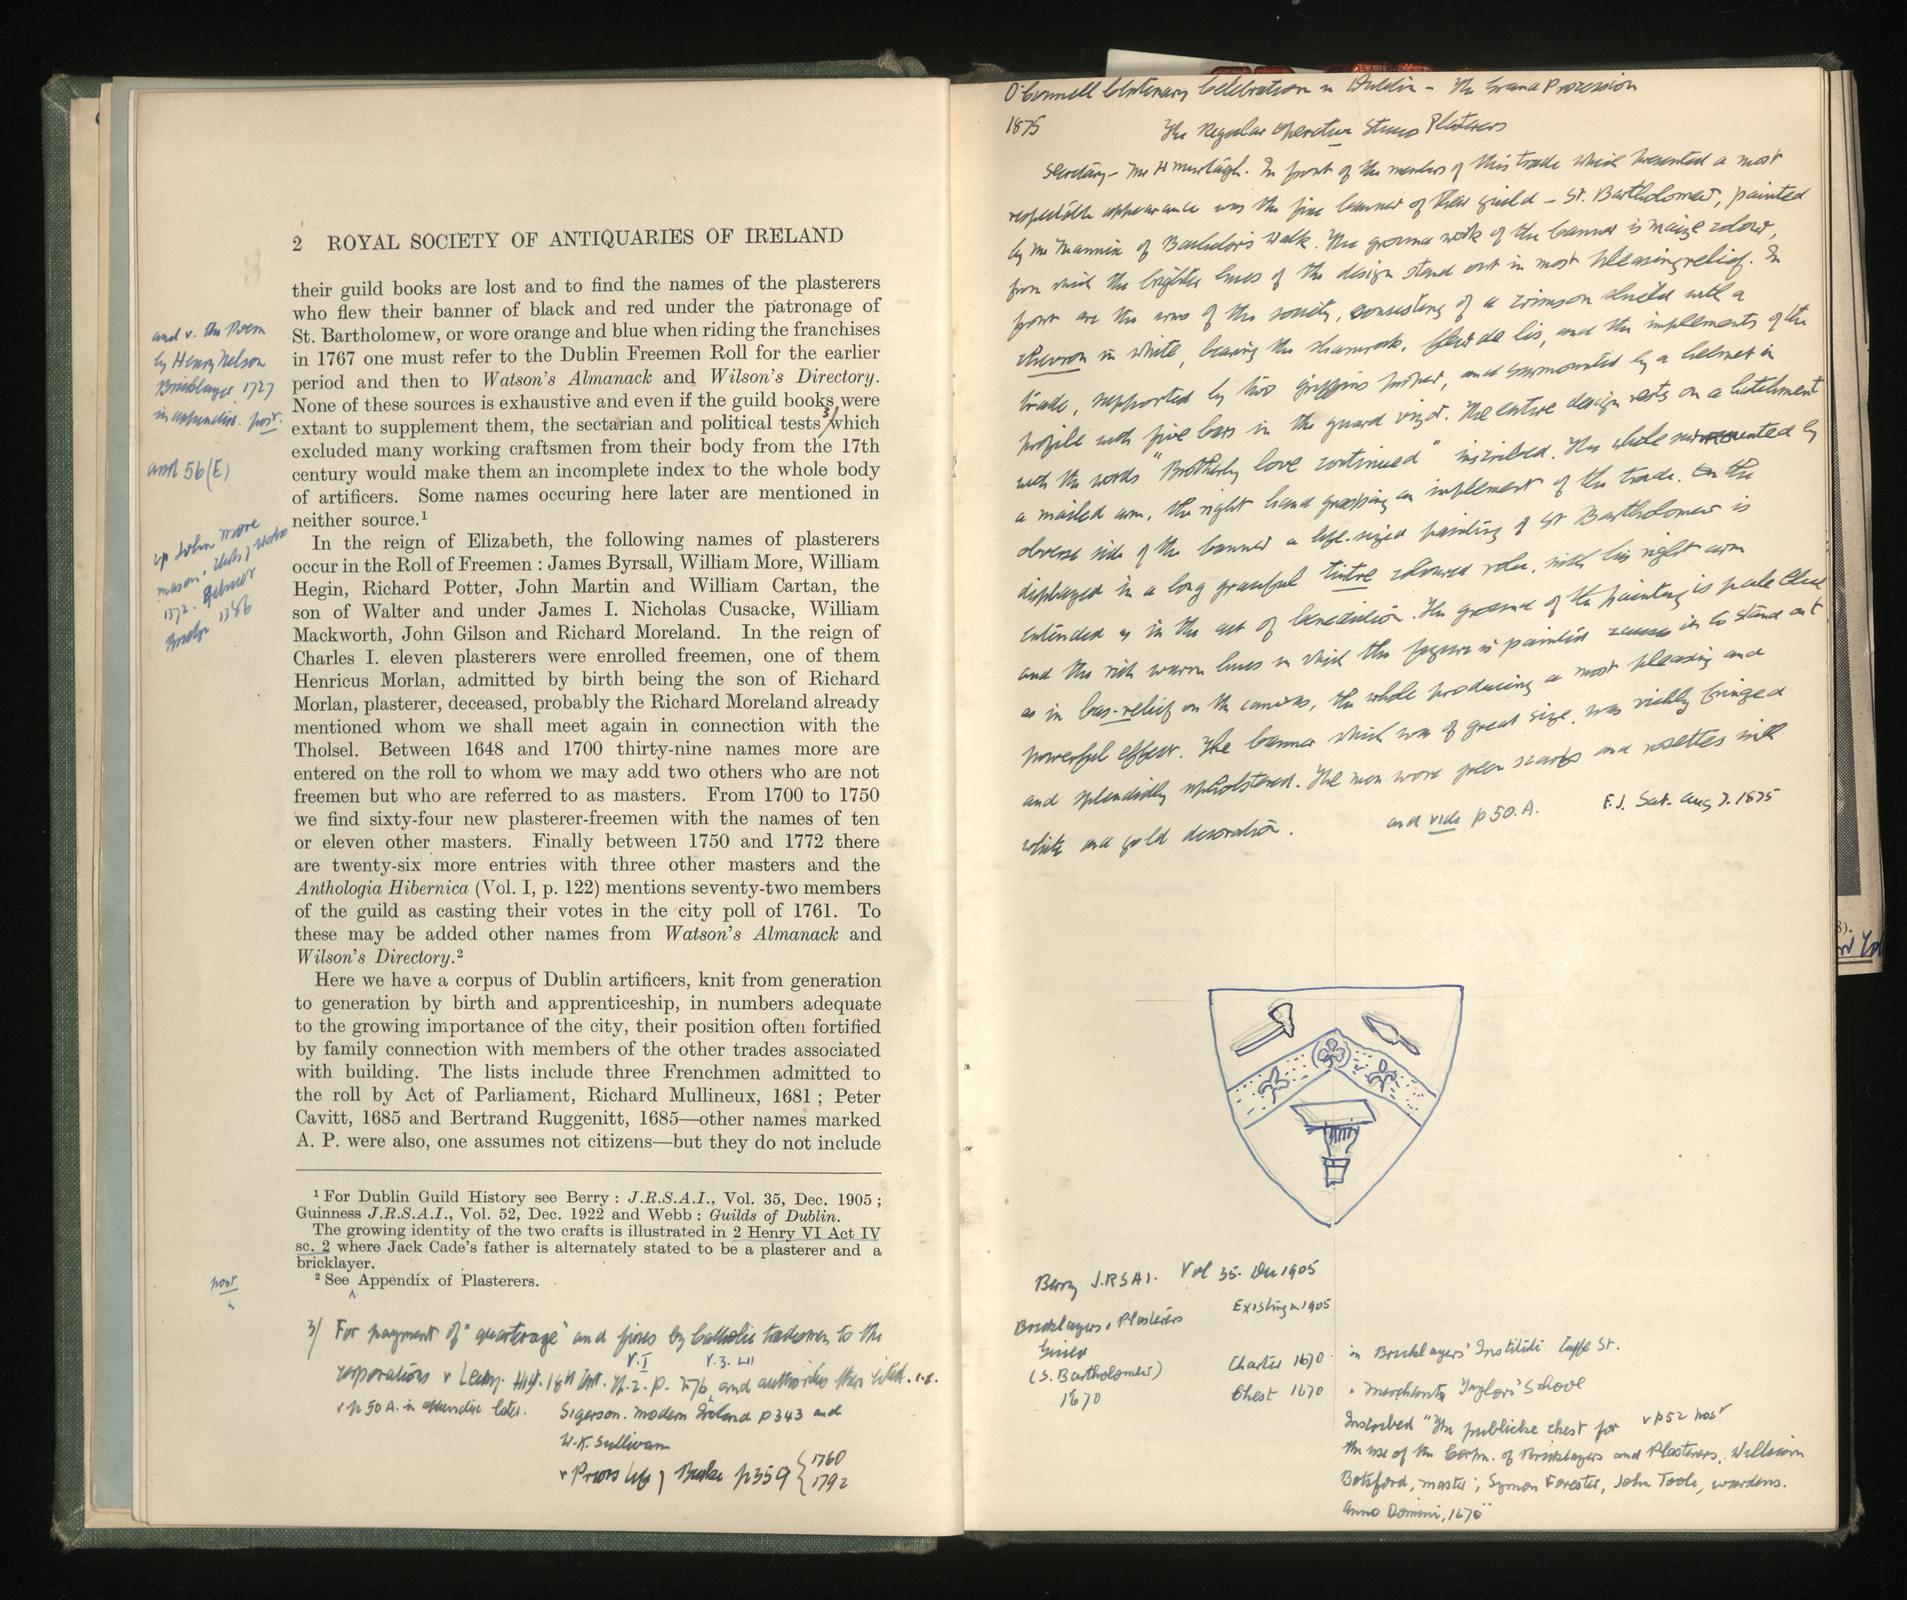 2 ROYAL SOCIETY OF ANTIQUARIES OF IRELAND
their guild books are lost and to find the names of the plasterers
who flew their banner of black and red under the patronage of
St. Bartholomew, or wore orange and blue when riding the franchises
in 1767 one must refer to the Dublin Freemen Roll for the earlier
period and then to Watson's Almanack and Wilson's Directory.
None of these sources is exhaustive and even if the guild books were
extant to supplement them, the sectarian and political tests 3/ which
excluded many working craftsmen from their body from the 17th
century would make them an incomplete index to the whole body
of artificers. Some names occuring here later are mentioned in
neither source.¹
In the reign of Elizabeth, the following names of plasterers
occur in the Roll of Freemen : James Byrsall, William More, William
Hegin, Richard Potter, John Martin and William Cartan, the
son of Walter and under James I. Nicholas Cusacke, William
Mackworth, John Gilson and Richard Moreland. In the reign of
Charles I. eleven plasterers were enrolled freemen, one of them
Henricus Morlan, admitted by birth being the son of Richard
Morlan, plasterer, deceased, probably the Richard Moreland already
mentioned whom we shall meet again in connection with the
Tholsel. Between 1648 and 1700 thirty-nine names more are
entered on the roll to whom we may add two others who are not
freemen but who are referred to as masters. From 1700 to 1750
we find sixty-four new plasterer-freemen with the names of ten
or eleven other masters. Finally between 1750 and 1772 there
are twenty-six more entries with three other masters and the
Anthologia Hibernica (Vol. I, p. 122) mentions seventy-two members
of the guild as casting their votes in the city poll of 1761. To
these may be added other names from Watson's Almanack and
Wilson's Directory.²
Here we have a corpus of Dublin artificers, knit from generation
to generation by birth and apprenticeship, in numbers adequate
to the growing importance of the city, their position often fortified
by family connection with members of the other trades associated
with building. The lists include three Frenchmen admitted to
the roll by Act of Parliament, Richard Mullineux, 1681 ; Peter
Cavitt, 1685 and Bertrand Ruggenitt, 1685—other names marked
A. P. were also, one assumes not citizens—but they do not include
¹ For Dublin Guild History see Berry : J.R.S.A.I., Vol. 35, Dec. 1905 ;
Guinness J.R.S.A.I., Vol. 52, Dec. 1922 and Webb : Guilds of Dublin.
The growing identity of the two crafts is illustrated in 2 Henry VI Act IV
sc. 2 where Jack Cade's father is alternately stated to be a plasterer and a
bricklayer.
² See Appendix of Plasterers.
post
and v. the Poem
by Henry Nelson
Bricklayer 1727
in appendix. post.
and 56(E)
John More
mason.
1572.
Bridge 1586
3/ For payment of "quarterage" and fines by Catholic tradesmen to the
corporations v Lecky. Hist. 18th Cent. p. 276, and authorities there cited. i.e.
V. I V. 3. LII
v p 50 A. in appendix later. Sigerson. Modern Ireland p 343 and
W.K. Sullivan
v Priors Life of Burke p359 { 1760
1792
O'Connell Centenary Celebration in Dublin – The Grand Procession
1875 The Regular Operative Stucco Plasterers
Secretary – Mr H Murtagh. In front of the members of this trade which presented a most
respectable appearance was the fine banner of their guild – St. Bartholomew, painted
by Mr Mannix of Bachelor's Walk. The ground work of the banner is maize colour,
from which the brighter hues of the design stand out in most pleasing relief. In
front are the arms of the society, consisting of a crimson shield with a
chevron in white, bearing the shamrock, fleur de lis, and the implements of the
trade, supported by two griffins proper, and surmounted by a helmet in
profile with five bars in the guard visor. The entire design rests on a hatchment
with the words "Brotherly love continued" inscribed. The whole surmounted by
a mailed arm, the right hand grasping an implement of the trade. On the
obverse side of the banner a life-sized painting of St Bartholomew is
displayed in a long graceful coloured robe, with his right arm
extended as in the act of benediction. The ground of the painting is pale blue
and the rich warm hues in which the figure is painted causes it to stand out
as in bas-relief on the canvas, the whole producing a most pleasing and
powerful effect. The banner which was of great size, was richly fringed
and splendidly upholstered. The men wore green scarfs and rosettes with
white and gold decoration. and vide p 50.A. F.J. Sat. Aug 7. 1875
Berry J.R.S.A.I. Vol 35. Dec 1905
Bricklayers & Plasterers Existing in 1905
Guild
(S. Bartholomew) Charter 1670 in Bricklayers' Institute Cuffe St.
1670 Chest 1670 " Merchant Taylors' School
Inscribed "The publicke chest for v p52 post
the use of the Corpn. of Bricklayers and Plasterers, William
Botsford, master; Symon Forester, John Toole, wardens.
Anno Domini, 1670"